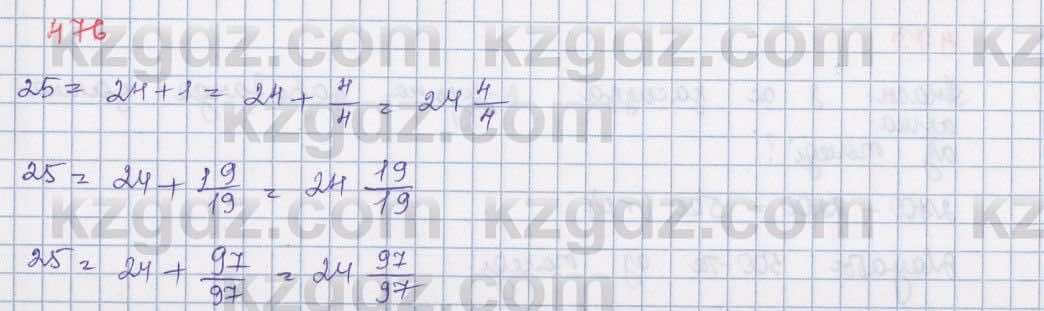 476
kzgdz.com kzgdz.com kz
25 = 24 + 1 = 24 + 4/4 = 24 4/4
kzgdz.com kzgdz.com
25 = 24 + 19/19 = 24 19/19
kzgdz.com kzgdz.com kz
25 = 24 + 97/97 = 24 97/97
kzgdz.com kzgdz.com